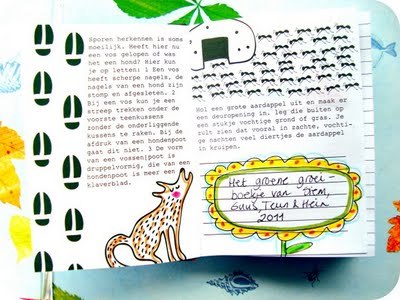 Sporen herkennen is soms
moeilijk. Heeft hier nu
een vos gelopen of was
het een hond? Hier kun
je op letten: 1 Een vos
heeft scherpe nagels, de
nagels van een hond zijn
stomp en afgesleten. 2
Bij een vos kun je een
streep trekken onder de
voorste teenkussens
zonder de onderliggende
kussens te raken. Bij de
afdruk van een hondenpoot
gaat dit niet. 3 De vorm
van een vossen|poot is
druppelvormig, die van een
hondenpoot is meer een
klaverblad.
Hol een grote aardappel uit en maak er
een deuropening in. leg die buiten op
een stukje vochtige grond of gras. Je
zult zien dat vooral in zachte, vochti-
ge nachten veel diertjes de aardappel
in kruipen.
Het groene groei-
boekje van Diem,
Guus, Teun & Hein
2011